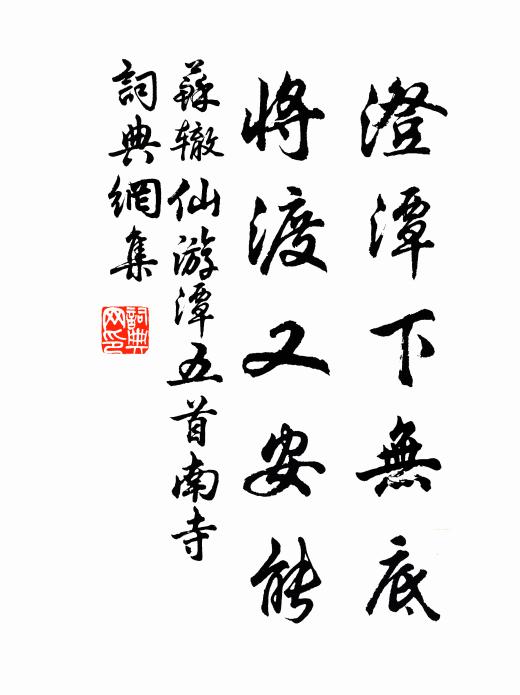 澄潭下無底
將渡又安能
蘇辙仙游潭五首南寺
詞典網集
詞典
网印